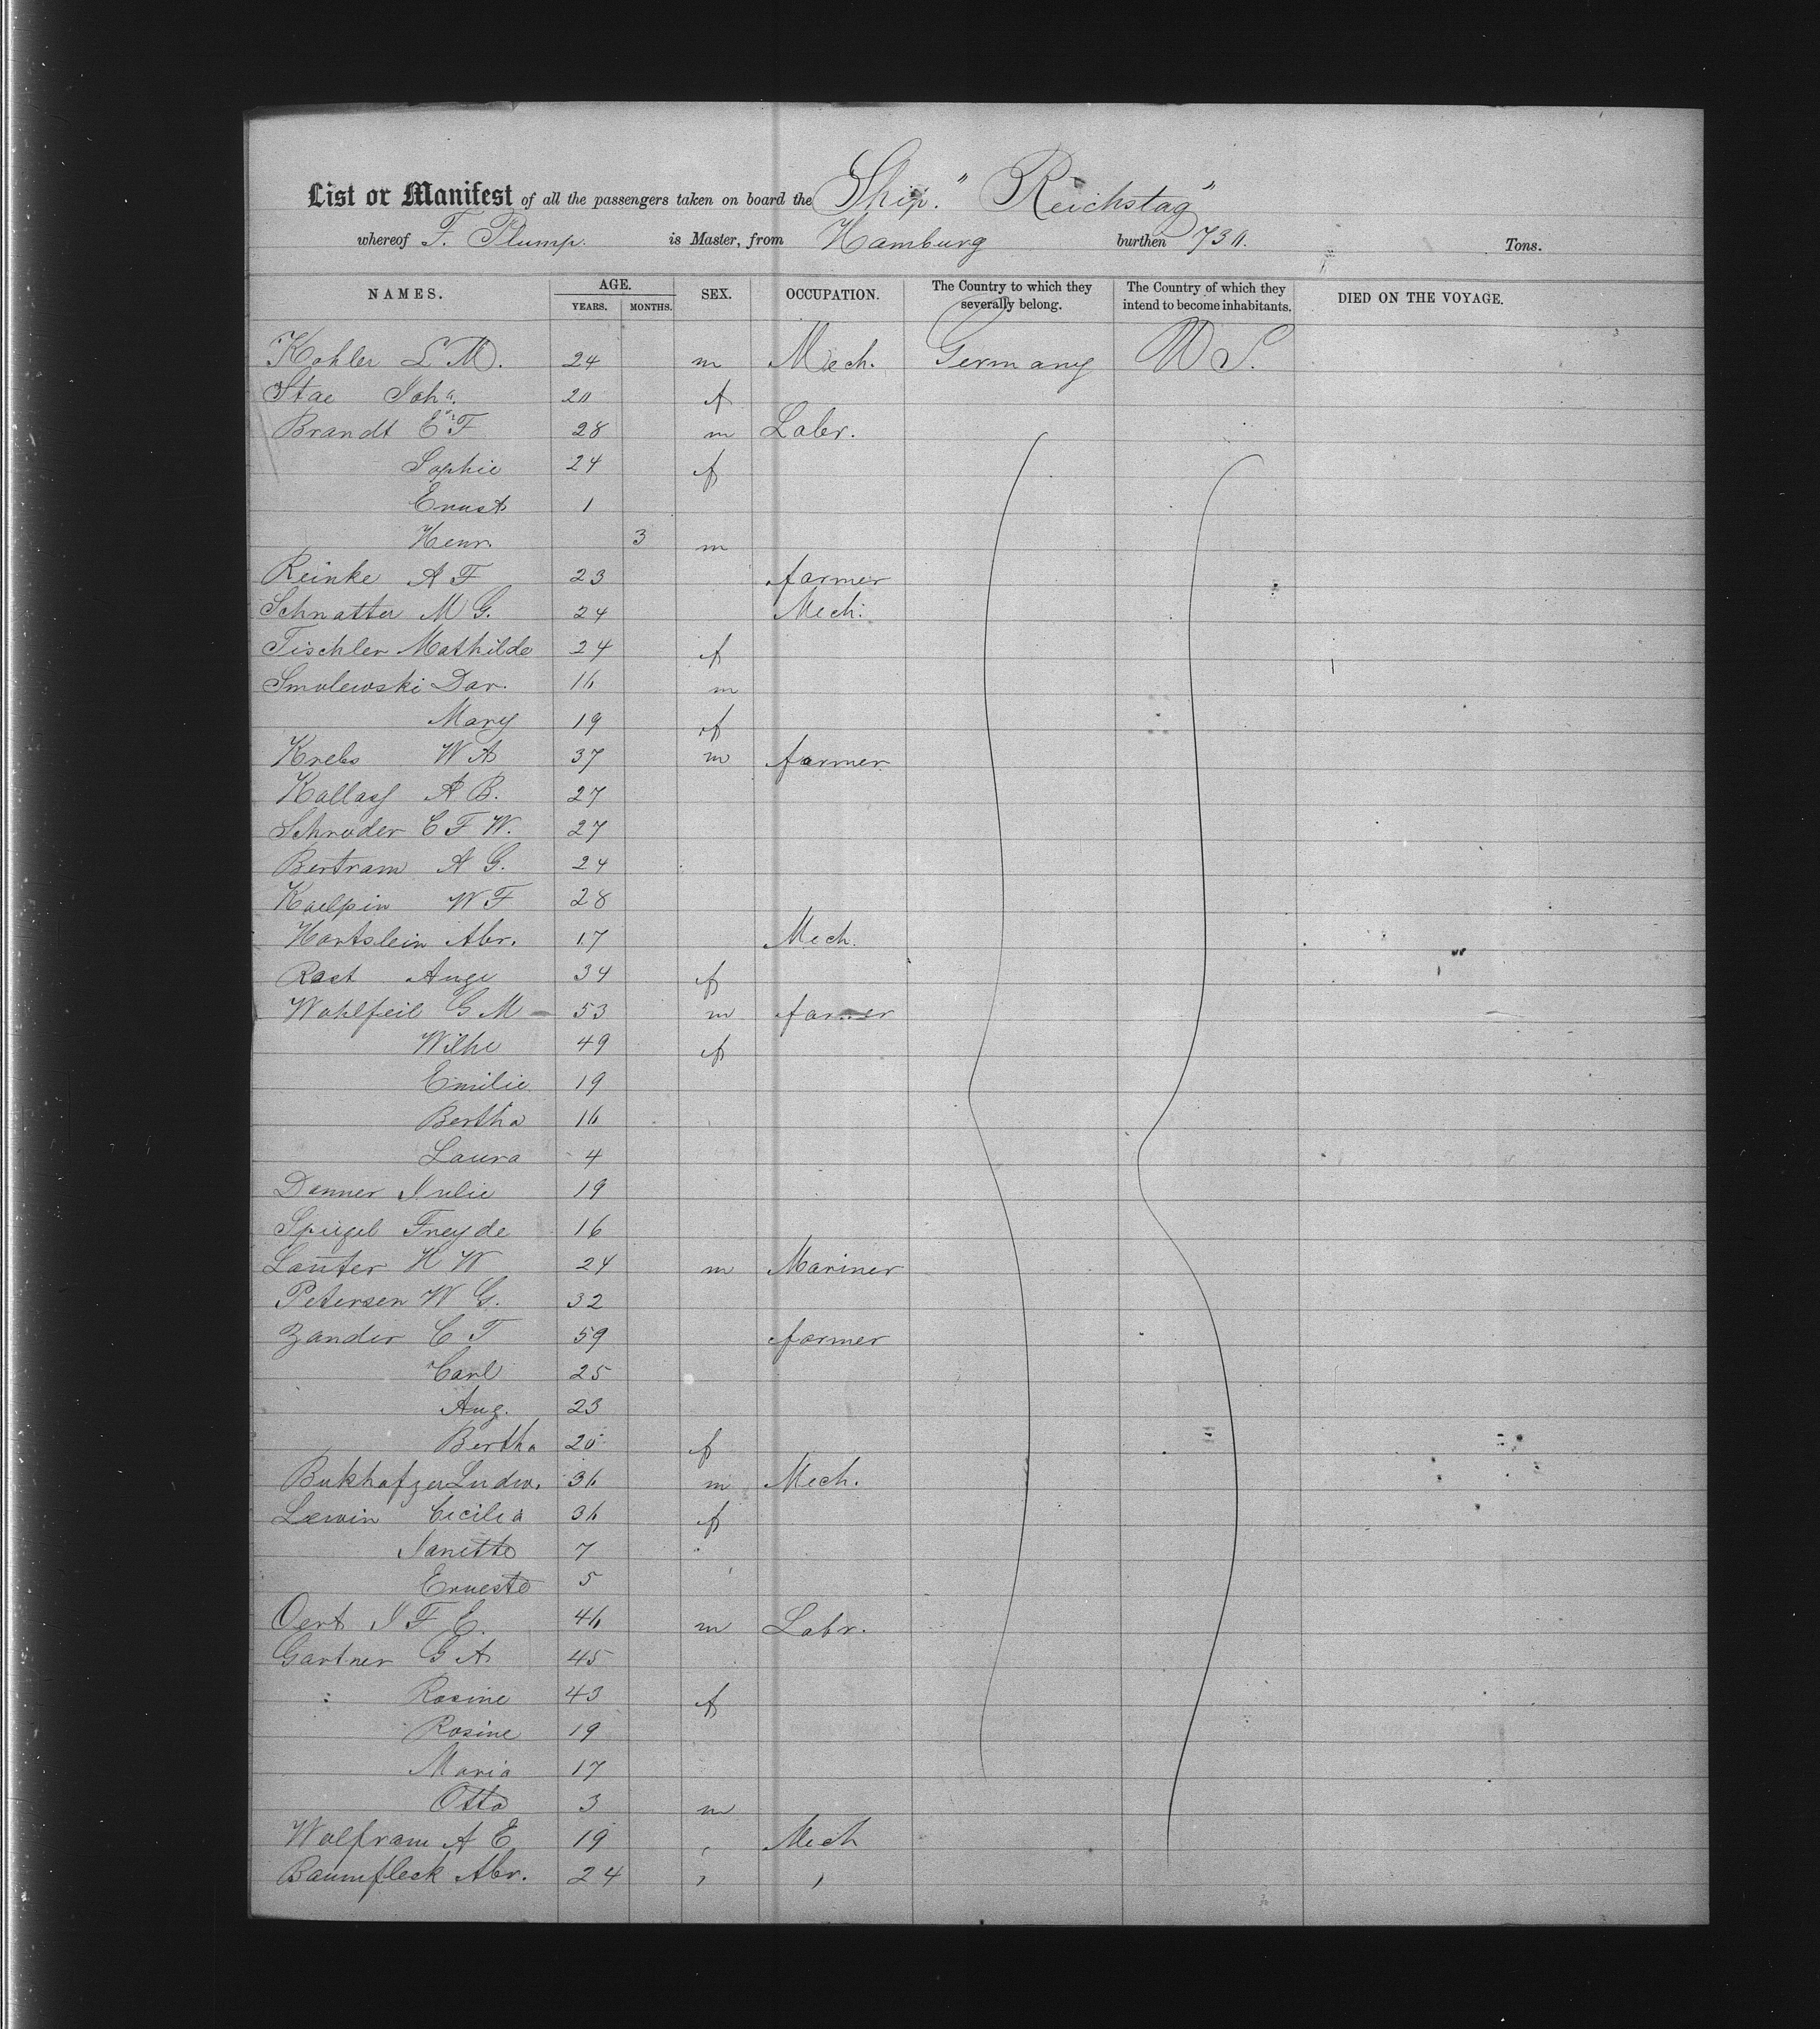 List or Manifest of all the passengers taken on board the Ship. "Reichstag"
whereof F. Plump. is Master, from Hamburg burthen 730. Tons.
NAMES. AGE. SEX. OCCUPATION. The Country to which they severally belong. The Country of which they intend to become inhabitants. DIED ON THE VOYAGE.
YEARS. MONTHS.
Kohler L M. 24 m Mech. Germany U S.
Stae Joha. 20 f
Brandt E F 28 m Labr.
Sophie 24 f
Ernst 1
Henr. 3 m
Reinke A F 23 farmer
Schnatter M G. 24 Mech.
Tischler Mathilde 24 f
Smolewski Dav. 16 m
Mary 19 f
Krebs W A 37 m farmer
Kallass A B. 27
Schroder C F W. 27
Bertram A G. 24
Koelpin W F 28
Hartslein Abr. 17 Mech.
Rast Auge 34 f
Wohlfeil G M 53 m farmer
Wilhe 49 f
Emilie 19
Bertha 16
Laura 4
Danner Julie 19
Spiegel Freyde 16
Lauter H W 24 m Mariner
Petersen W G. 32
Zander C T 59 farmer
Carl 25
Aug. 23
Bertha 20 f
Ludw. 36 m Mech.
Lewin Cecilia 36 f
Janette 7
Erneste 5
Oert J F E. 46 m Labr.
Gartner G A 45
Rosine 43 f
Rosine 19
Maria 17
Otto 3 m
Wolfram A E 19 " Mech
Baumfleck Abr. 24 " "